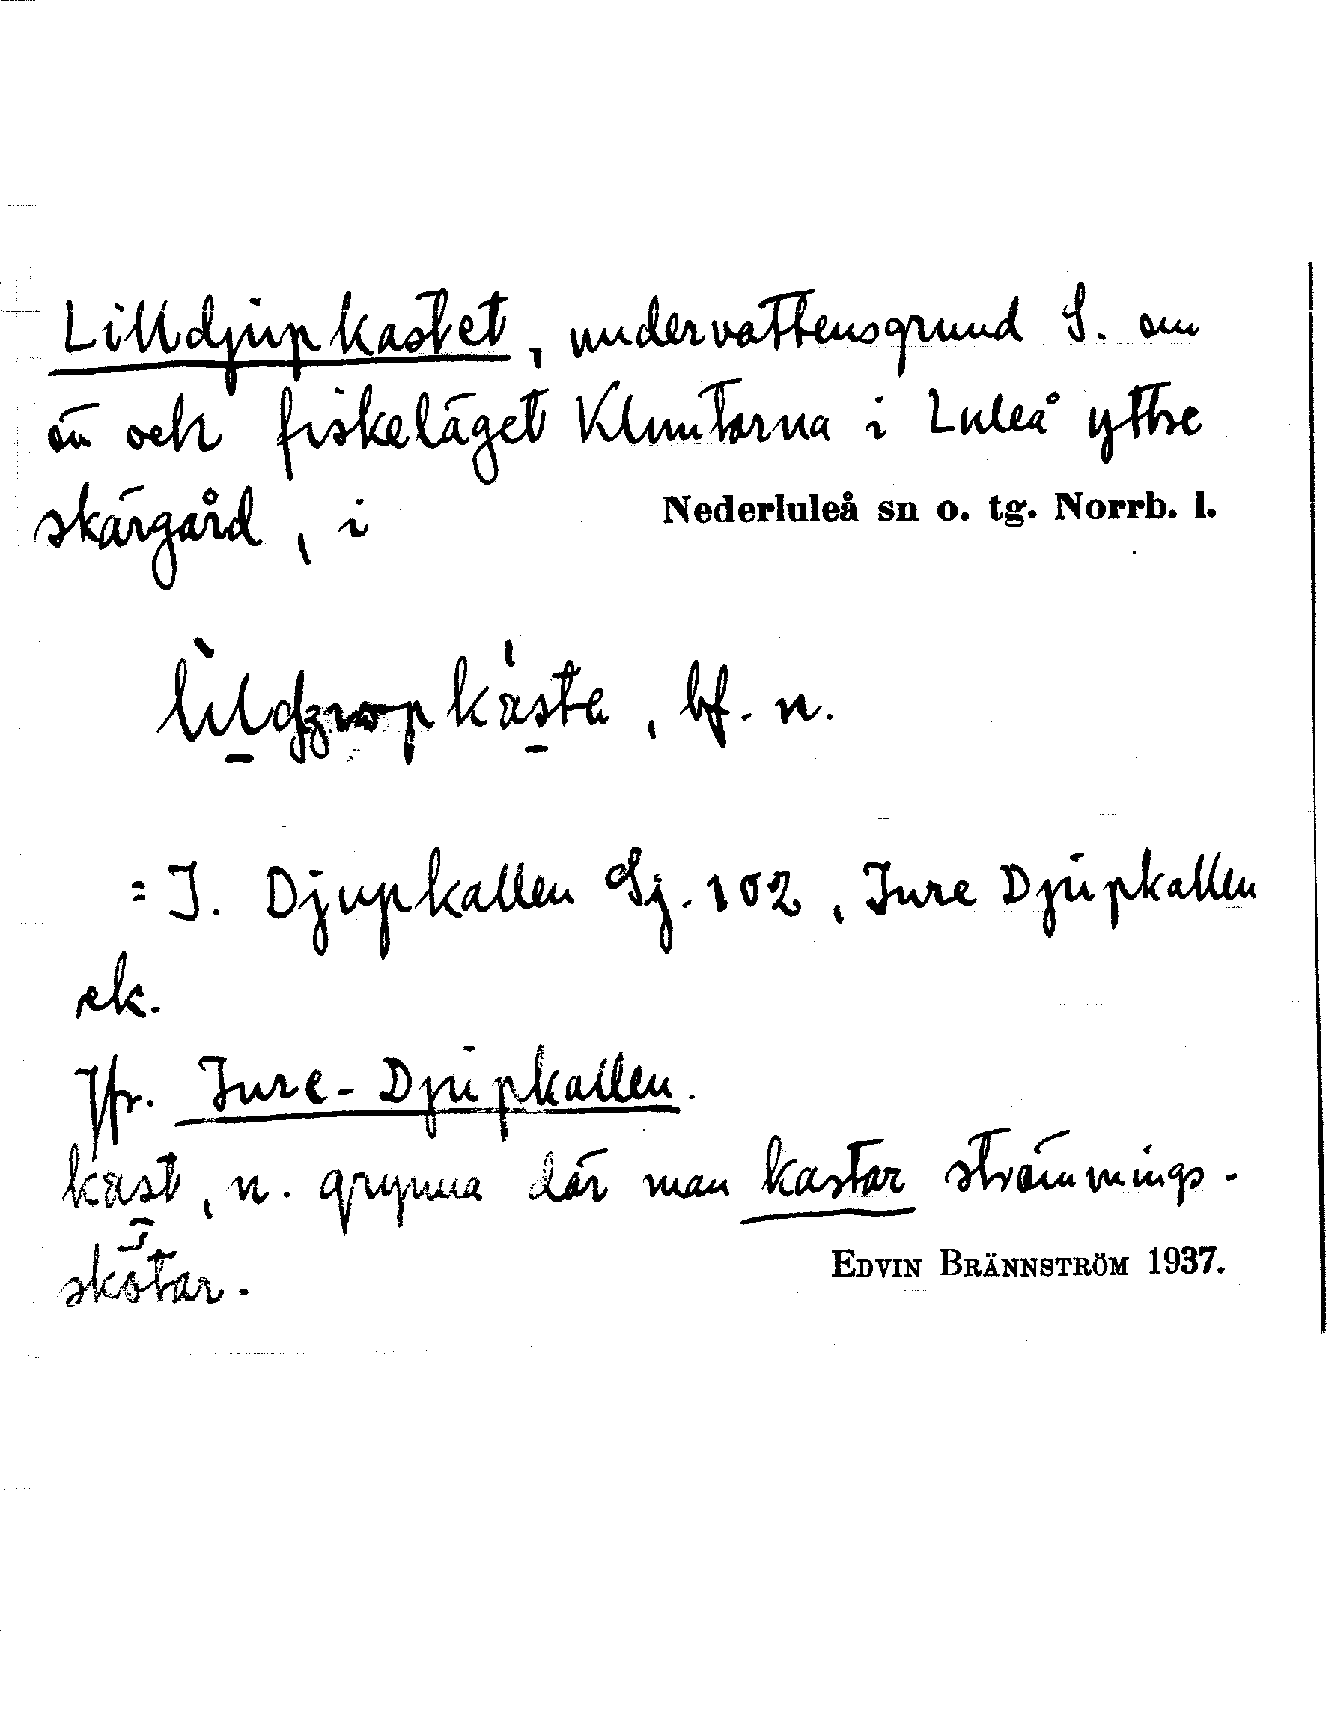 Lilldjupkastet, undervattensgrund S. om
ön och fiskeläget Kluntarna i Luleå yttre
skärgård, i Nederluleå sn o. tg. Norrb. l.
, bf. n.
= I. Djupkallen Sj. 102, Inre Djupkallen
ek.
Jfr. Inre-Djupkallen.
kast, n. grynna där man kastar strömmings-
skötar.
EDVIN BRÄNNSTRÖM 1937.